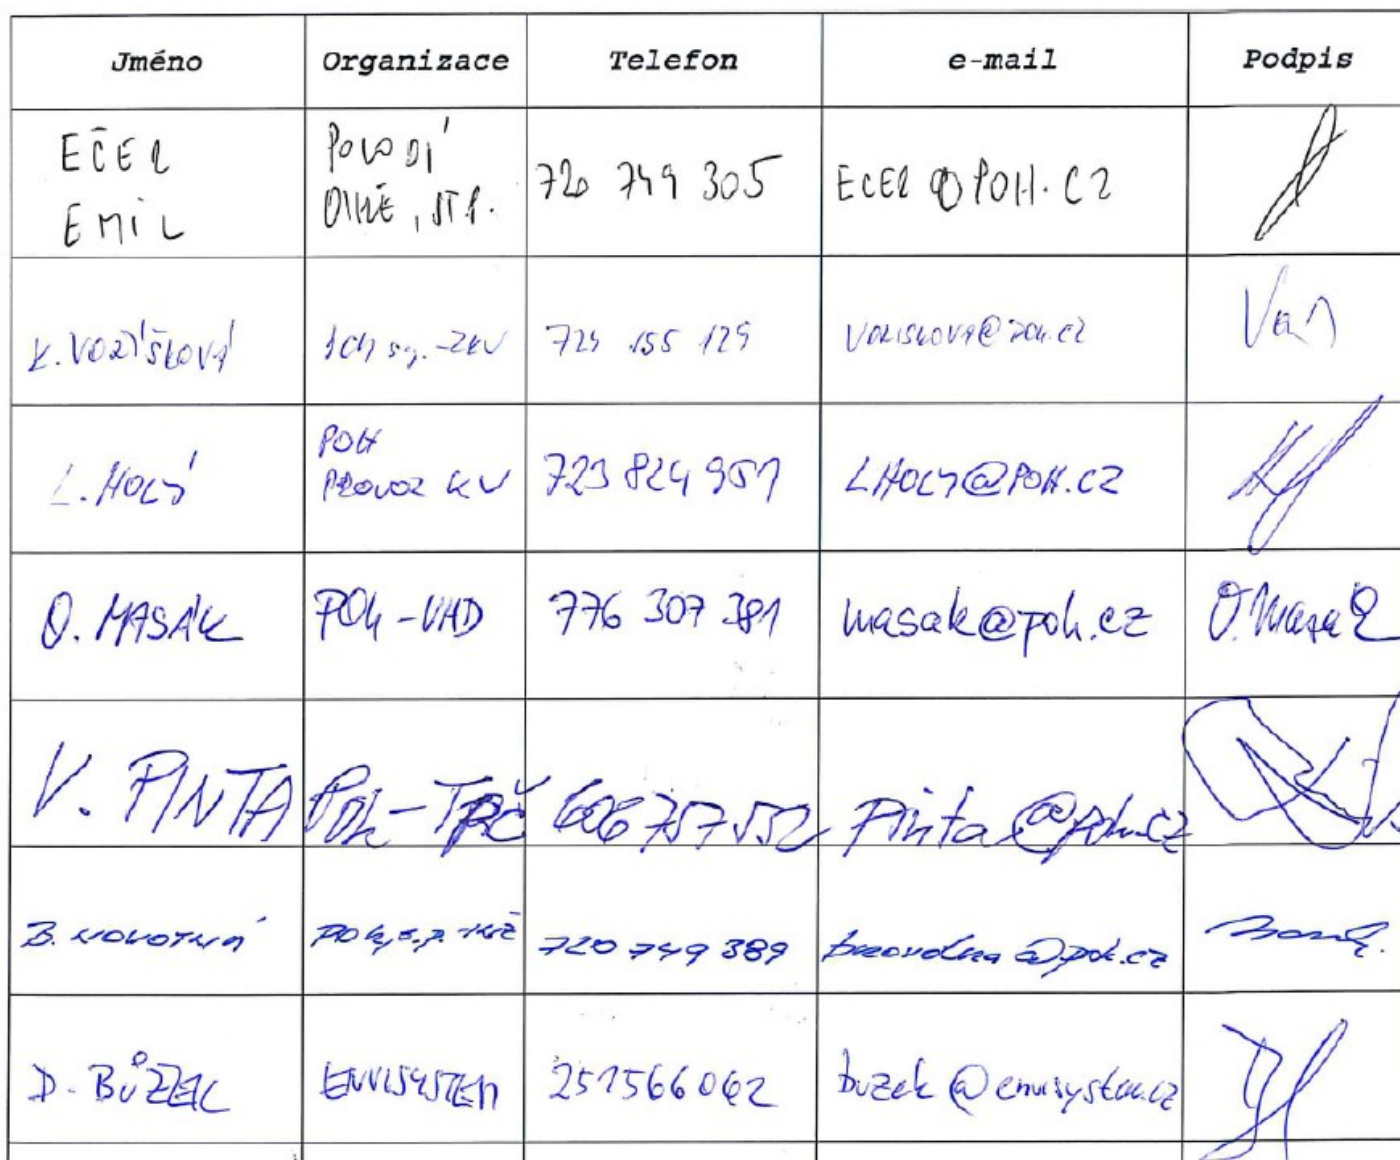 Jméno Organizace Telefon e-mail Podpis
EČER POVODÍ
EMIL OHŘE, ST.P. 720 749 305 ECER@POH.CZ
K. VOZÍŠKOVÁ 724 155 129
L. HOLÝ POH
PROVOZ KV 723 824 951 LHOLY@POH.CZ
O. MASÁK POh-VHD 776 307 381 masak@poh.cz O. Masák
V. PINTA POh-TPČ 606 757 552 pinta@poh.cz
B. NOVOTNÁ POh, s.p. 720 749 389 @poh.cz
D. BŮZEK ENVISYSTEM 251566062 buzek@envisystem.cz